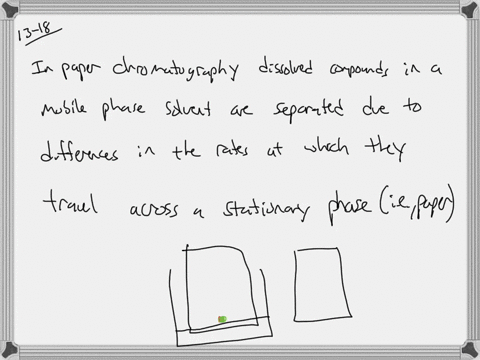 13-18
In paper chromatography dissolved compounds in a
mobile phase solvent are separated due to
differences in the rates at which they
travel across a stationary phase (i.e., paper)